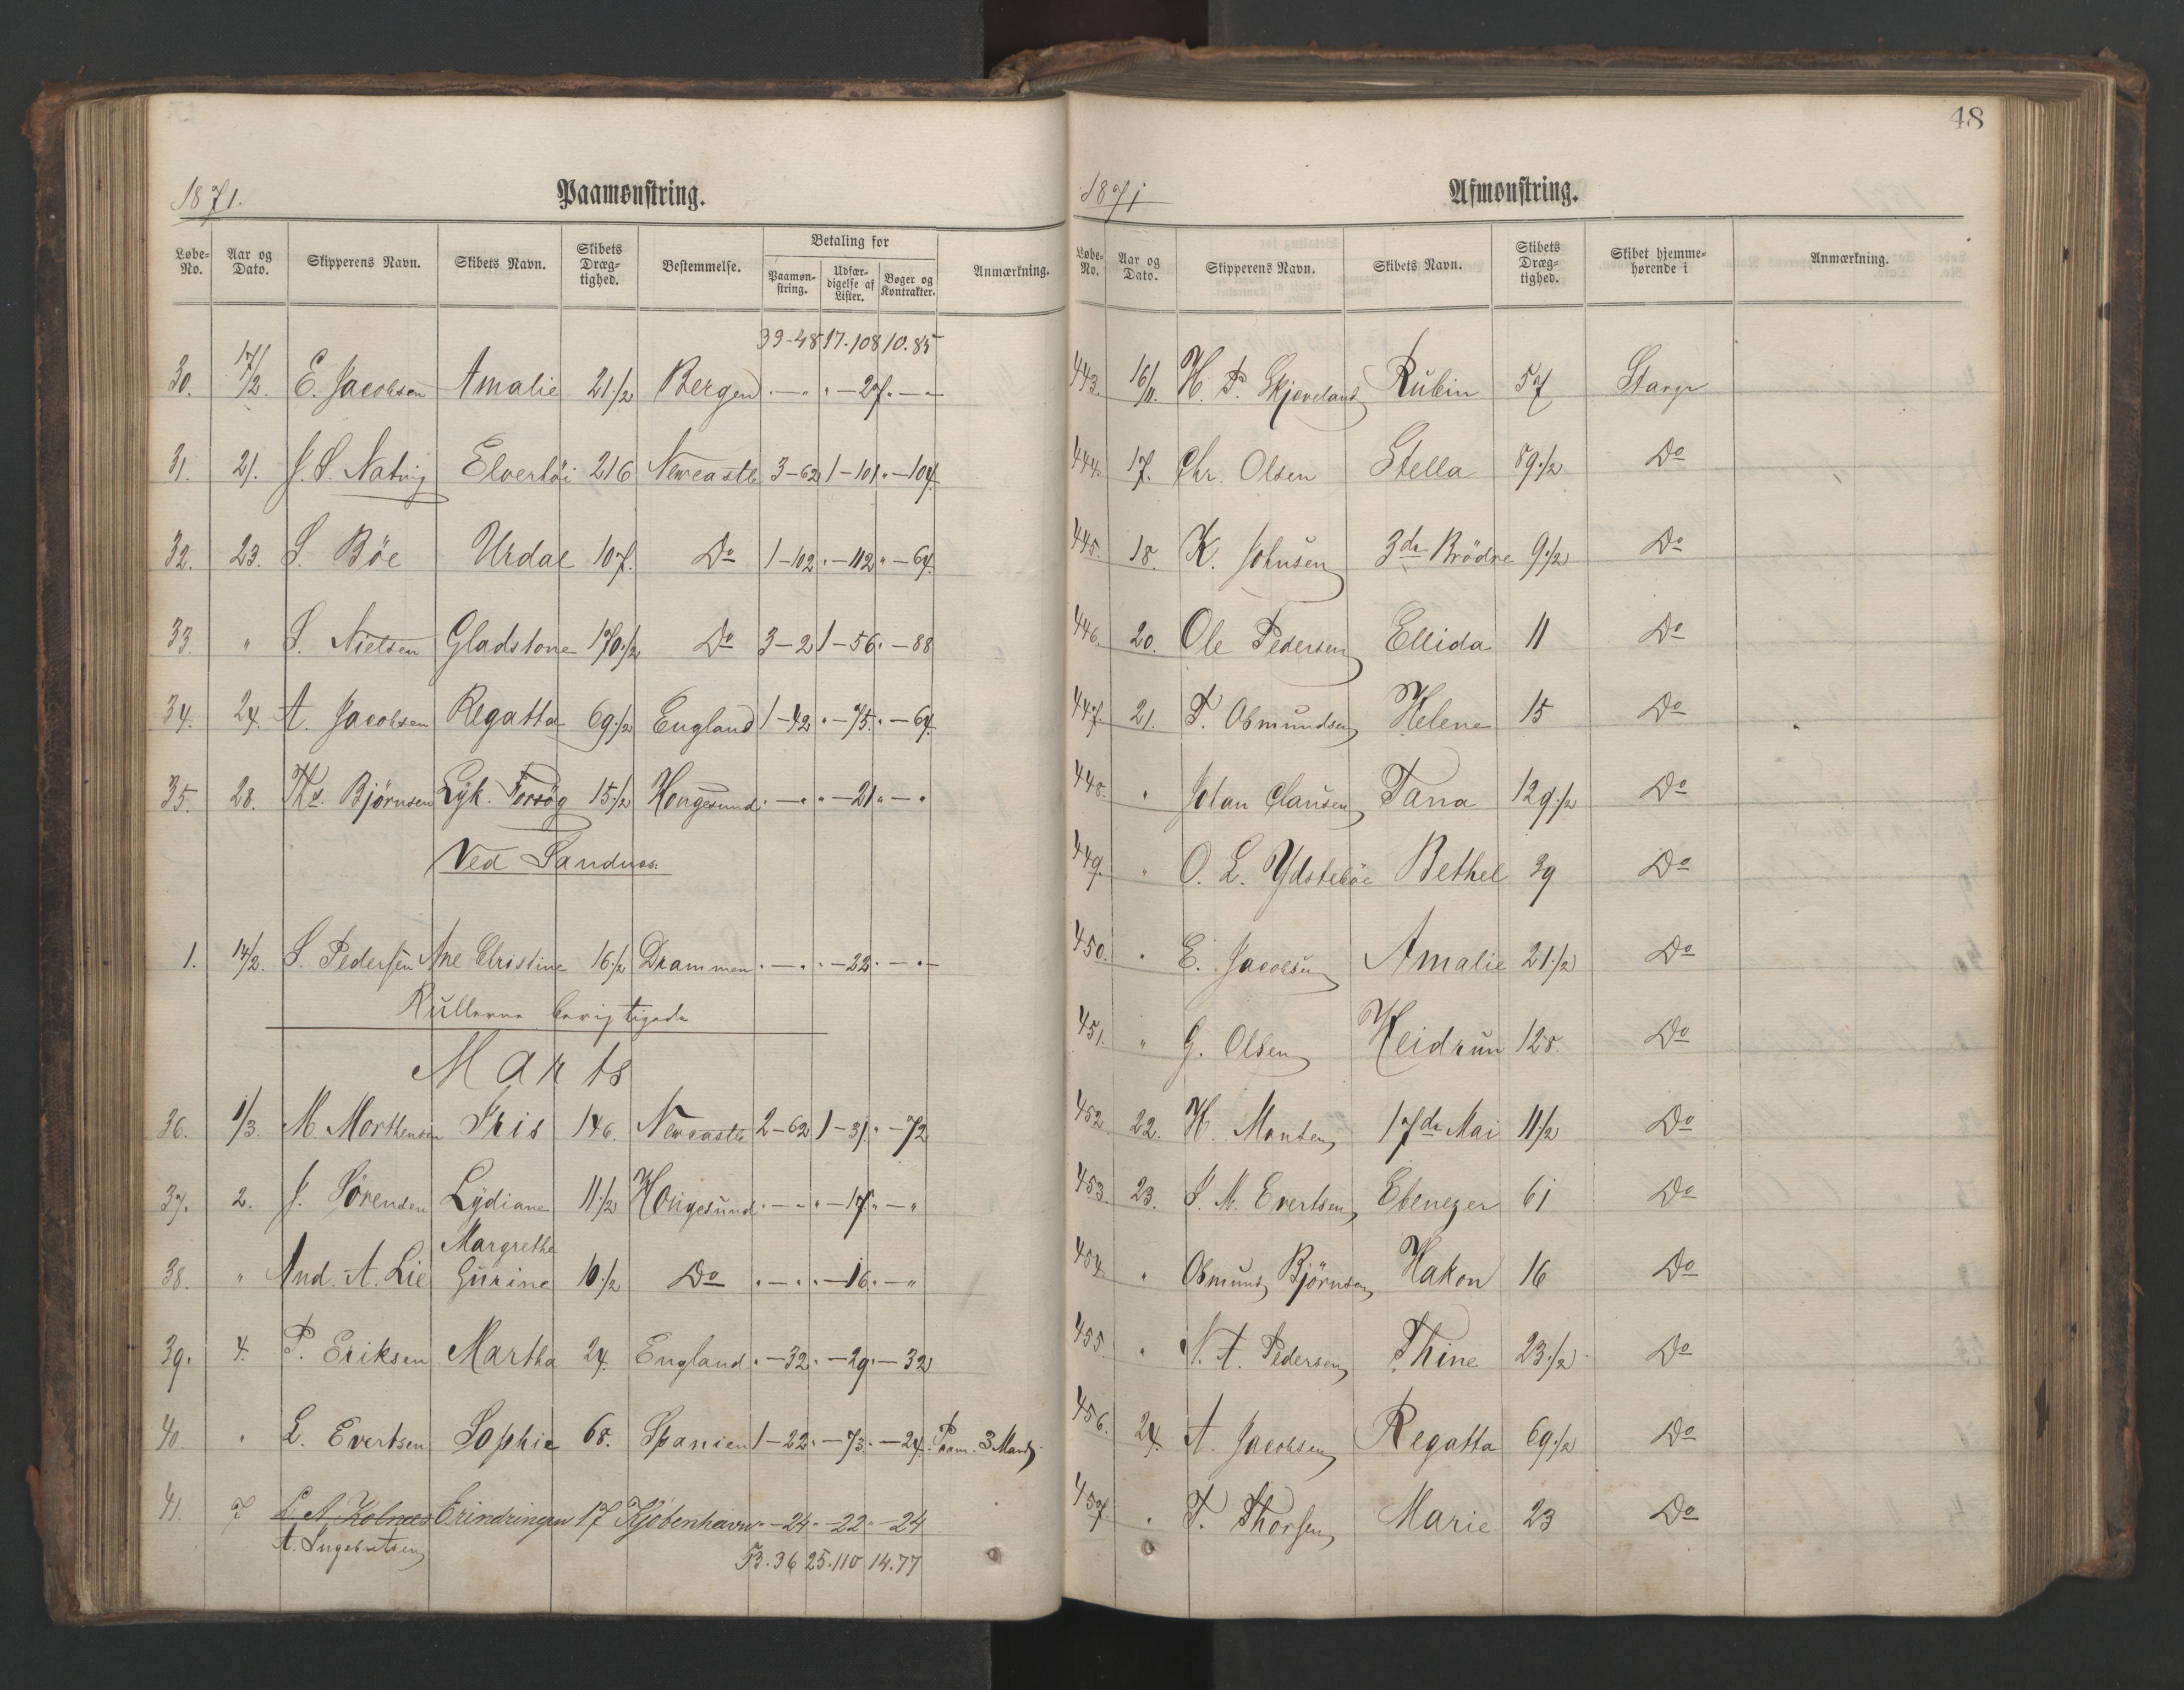 1871.
Paamønstring.
Løbe-No. Aar og Dato. Skipperens Navn. Skibets Navn. Skibets Dræg-tighed. Bestemmelse. Betaling for Paamøn-string. Udfær-digelse af Lister. Bøger og Kontrakter. Anmærkning.
39-48 17.108 10.85
30. 17/2. E. Jacobsen Amalie 21 1/2 Bergen " — " " — 27. " — "
31. 21. J. S. Natvig Elvertöi 216 Newcastle 3-62 1-101 " — 104.
32. 23. S. Böe Urdal 107. Do 1-102 " — 112 " — 64.
33. " S. Nielsen Gladstone 170 1/2 Do 3-2 1-56 " — 88
34. 24. A. Jacobsen Regatta 69 1/2 England 1-42 " — 75. " — 64.
35. 28. Ths. Bjørnsen Lyk. Forsög 15 1/2 Hougesund " — " " — 21 " — "
Ved Sandnes.
1. 14/2. S. Pedersen Ane Christine 16 1/2 Drammen " — " " — 22 " — "
Rullerne berigtigede
Marts
36. 1/3. M. Morthensen Iris 146. Newcastle 2-62 1-31 " — 72
37. 2. J. Sörensen Lydiane 11 1/2 Hougesund " — " " — 17. " — "
38. " And. A. Lie Margrethe Gurine 10 1/2 Do " — " " — 16. " — "
39. 4. P. Eriksen Martha 24. England " — 32 " — 29 " — 32
40. " L. Evertsen Sophie 68. Spanien 1-22 " — 73. " — 24. Paam. 3 Mand
41. 7 L. A. Kolnæs Erindringen 17 Kjöbenhavn " — 24 " — 22 " — 24
A. Ingebretsen
53.36 25.110 14.77
48
1871
Afmønstring.
Løbe-No. Aar og Dato. Skipperens Navn. Skibets Navn. Skibets Dræg-tighed. Skibet hjemme-hørende i Anmærkning.
443. 16/11. H. P. Skjæveland Rubin 57 Stavgr
444. 17. Chr. Olsen Stella 89 1/2 Do
445. 18. K. Johnsen 3de Brödre 9 1/2 Do
446. 20. Ole Pedersen Ellida 11 Do
447. 21. T. Osmundsen Helene 15 Do
448. " Johan Clausen Tana 129 1/2 Do
449. " O. L. Ydsteböe Bethel 39 Do
450. " E. Jacobsen Amalie 21 1/2 Do
451. " G. Olsen Heidrun 128. Do
452. 22. H. Monsen 17de Mai 11 1/2 Do
453. 23. S. M. Evertsen Ebenezer 61 Do
454. " Osmund Björnsen Hakon 16 Do
455. " N. A. Pedersen Thine 23 1/2 Do
456. 24. A. Jacobsen Regatta 69 1/2 Do
457. " T. Thorsen Marie 23 Do